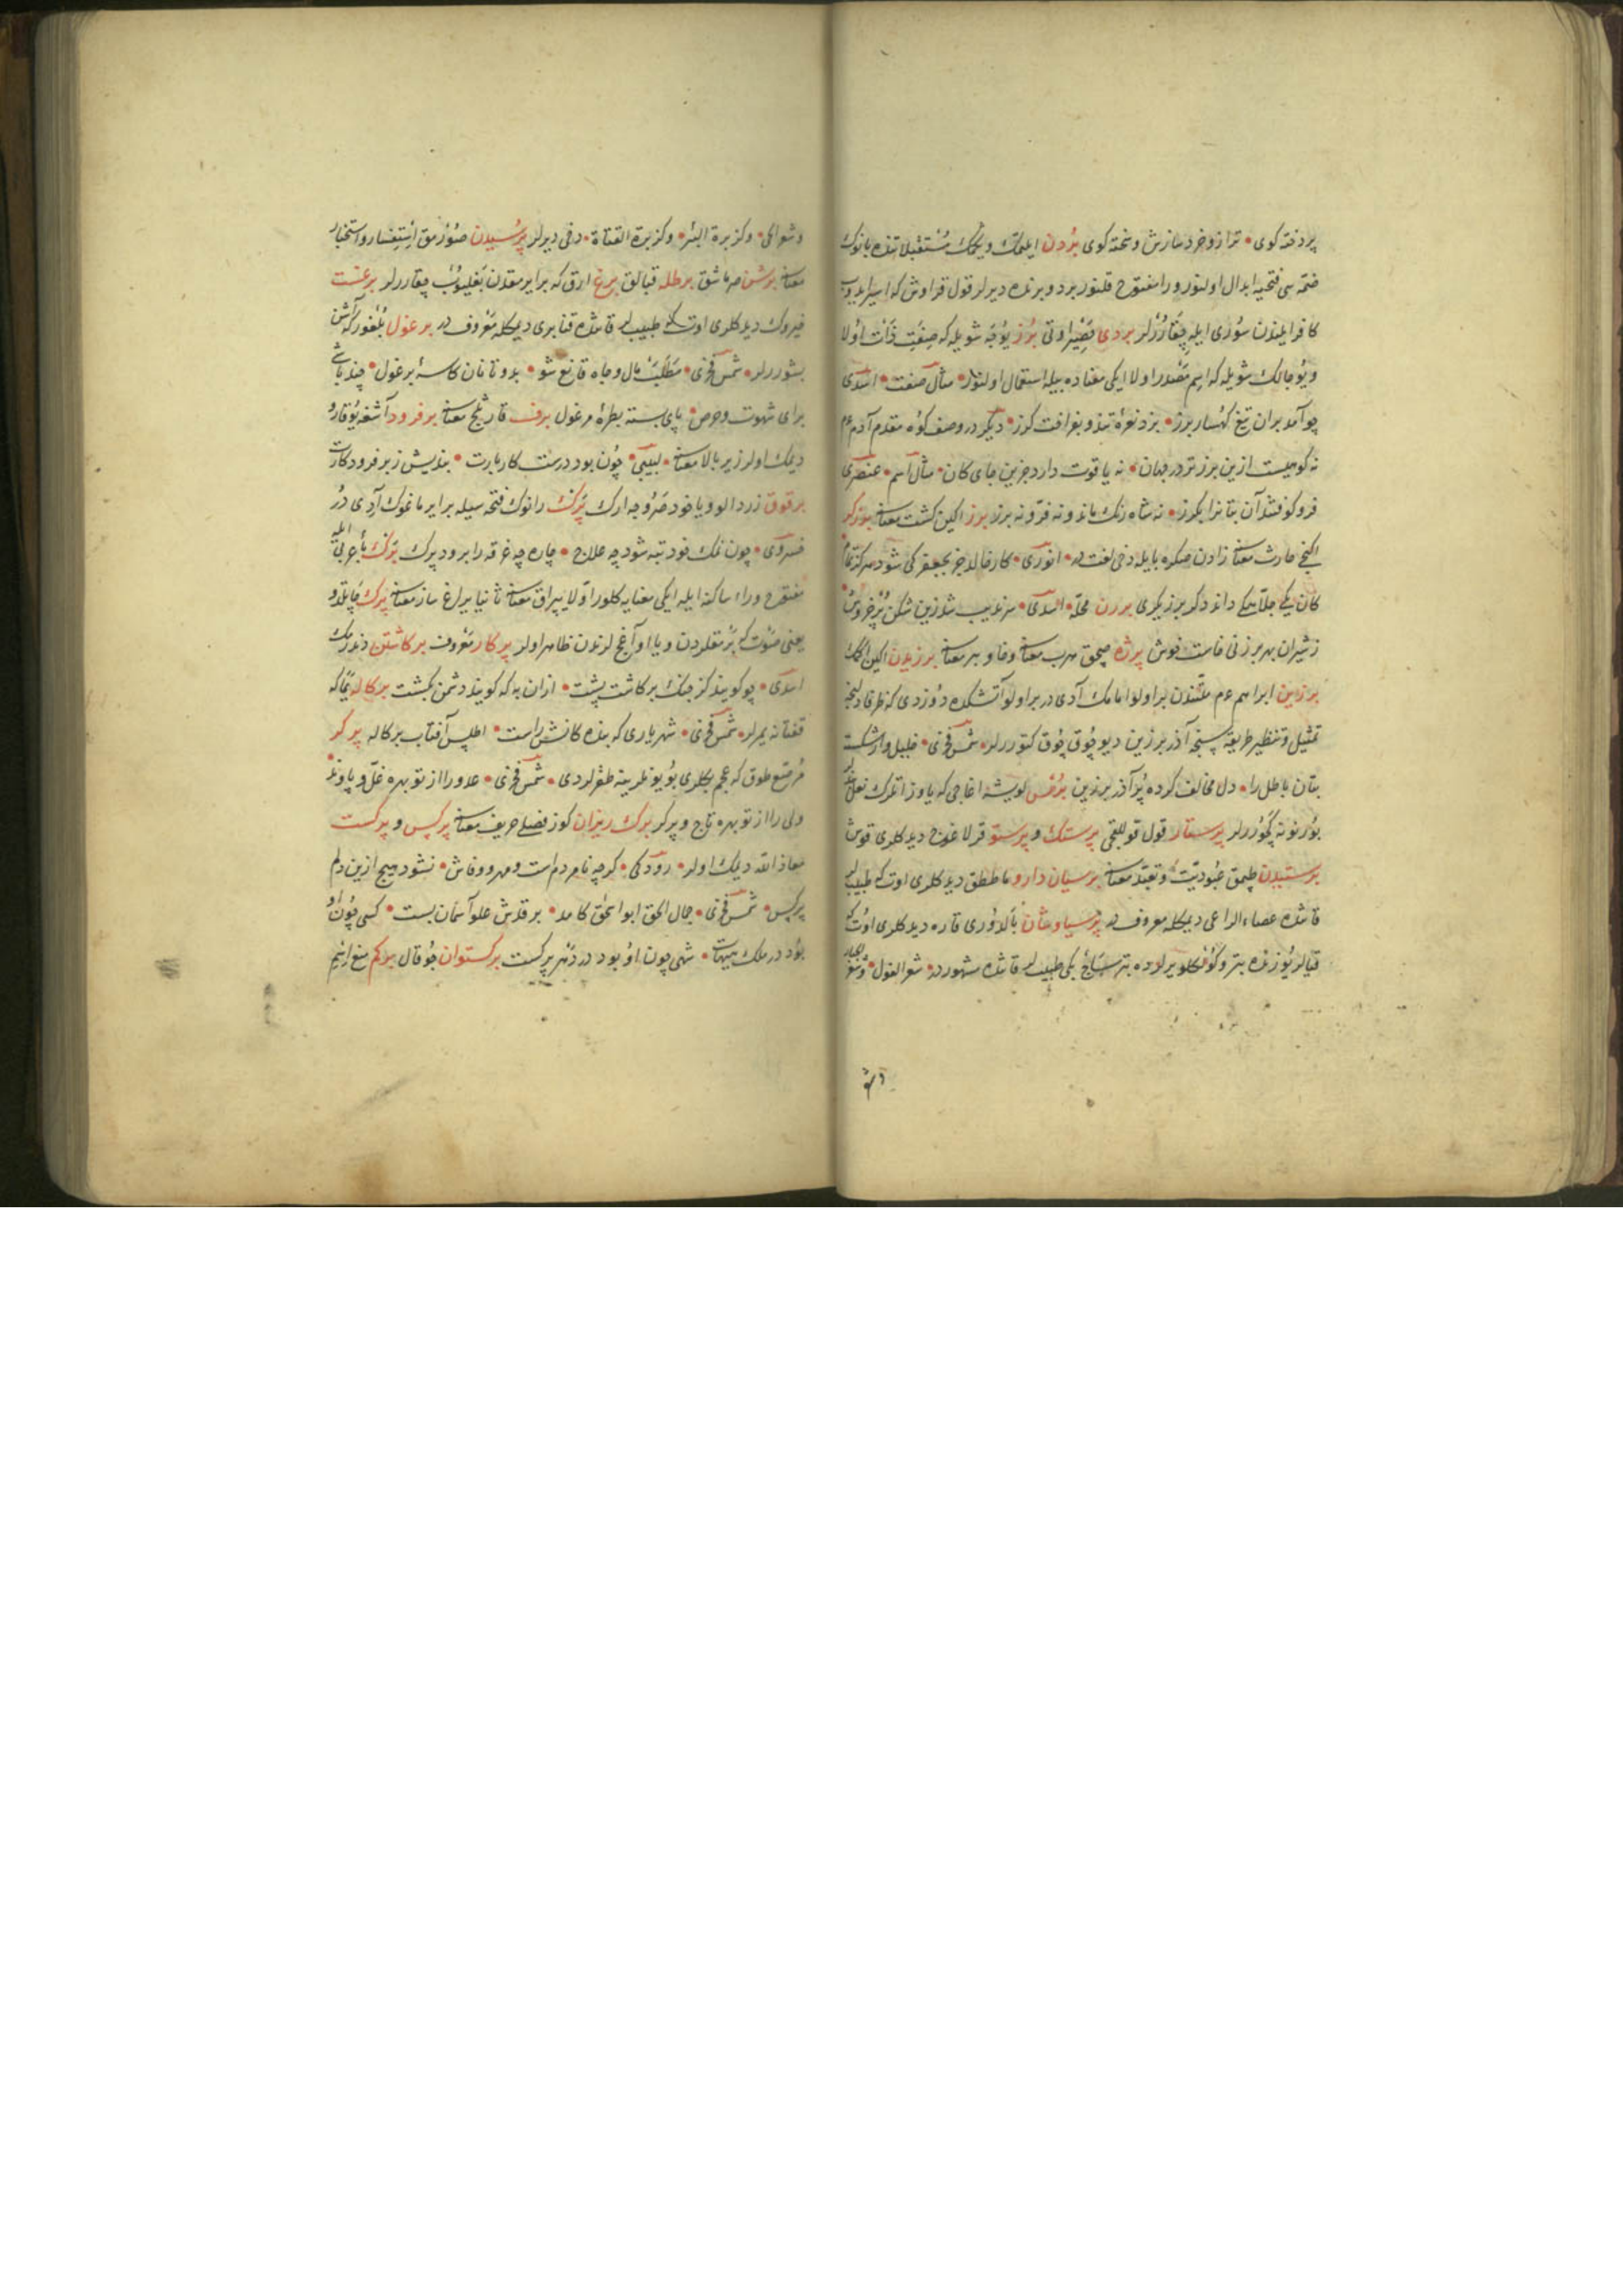 پردخته کوی • ترازو خرد سازش و سخته کوی بردن ایلتمک و یکمک مستقبلا تنده بانوک
ضمه سی فتحیه ابدال اولنور ورا مفتوح قلنور برد و برنده دیرلر قول قراوش که اسیر ایدوب
کافر ایلندن سوری ایله چقارورلر بردی قصیر اوتی برز یوجه شویله که صفت ذات اولا
و یوجالک شویله که اسم مصدر اولا ایکی معناده بیله استعمال اولنور • مثال صفت • اسدی
چو آمد بران تیغ کهسار برز • بزد نعره تند و بفراخت کرز • دیکر در وصف کوه مقدم آدم عم
نه کوهیست ازین برز تر در جهان • نه یاقوت دارد جزین جای کان • مثال اسم • عنصری
فرو کوفتند آن بتانرا بکرز • نه شاه رنک ماند و نه فر و نه برز برز اکین کشت معناسنه برزکر
اکنجی حارث معناسنه زادن صکره یا ایله دخی لغتدر • انوری • کار خالد جز بجعفر کی شود هرکز تمام
کان یکی جولاهکی داند دکر برزیکری برزن محله • اسدی • سرندیب شد زین شکن پر خروش
زشیران بهر برزنی خاست جوش پرژه صچق هرب معناسنه وفا و بر معناسنه برزیدن اکین اکمک
برزین ابراهیم عم ملتندن بر اولو امامک آدی در بر اولو آتشکده دوزدی که ظرفا دلنجه
تمثیل و تنظیر طریقیله سینجه آذر برزین دیو چوق چوق کتورلر • شمس فخری • خلیل وار شکست
بتان باطل را • دل مخالف کرده پر آذر برزین برس لویشه اغاجی که یاوز اتلرک نعل
بورنونه کچورلر پرستار قول قوللقچی پرستک و پرستو قرلاغوج دیدکلری قوش
پرستیدن طپمق عبودیت و تعبد معناسنه برسیان دارو ماططق دیدکلری اوت که طبیبلر
قاتنده عصاء الراعی دیمکله معروفدر پرسیاوشان بالدوری قاره دیدکلری اوت که
قیالر یوزنده بتر و کونکلو یرلرده بتر سنانج یکی طبیبلر قاتنده مشهوردر • شعر الغول • وشعر الجبار
وشو
وشوالحی • وکزبرة البئر • وکزبرة القناة • دخی دیرلر پرسیدن صورمق استفسار و استخبار
معناسنه برشن صرماشق برطله قبالق برغ ارق که بر ایرمقدن بغلیوب چقارلر برغست
فیروک دیدکلری اوت که طبیبلر قاتنده قنابری دیمکله معروفدر برغول بلغور که آش
بشوررلر • شمس فخری • مطلب مال و جاه قانع شو • بدو تا نان کاسه برغول • چند باشی
برای شهوت و حرص • پای بسته بطره مرغول برف قار ثلج معناسنه برفرود آشغه یوقارو
دیمک اولر زیر بالا معناسنه • لبیبی • چون بود درست کار بارت • بندیش زبر فرود کارت
برقوق زردالو و یا خود صروجه ارک پَرَک رانوک فتحه سیله بر ایرماغوک آدی در
خسروی • چون نمک خود تبه شود چه علاج • چاره چه غرقه را برود پرک برک باء عربی ایله
مفتوح وراء ساکنه ایله ایکی معنایه کلور اولا یپراق معناسنه ثانیا یراغ ساز معناسنه پرک چاپلدو
یعنی صوت که بر مقلردن و یا او آغاجلرندن ظاهر اولر پرکار معروف برکاشتن دندرمک
اسدی • چو کویند کز جنک برکاشت پشت • ازان به که کویند دشمن بکشت برکاله یما که
قفتانه یمرلر • شمس فخری • شهریاری که بنده کانش راست • اطلس آفتاب برکاله پرکر
مرصع طوق که عجم بکلری بویونلرینه طقرلردی • شمس فخری • عدو را از تو بهره غل و پاوند
ولی را از تو بهره تاج و پرکر برک ریزان کوز فصلی خریف معناسنه پرکس و پرکست
معاذ الله دیمک اولر • رودکی • کرچه نامردم است مهر و وفاش • نشود هیچ ازین دلم
پرکس • شمس فخری • جمال الحق ابو اسحق کامد • بر قدش علو آسمان پست • کسی چون او
بود در ملک هیهات • شهی چون او بود در دهر پرکست برکستوان جوقال برکم منع ایتم